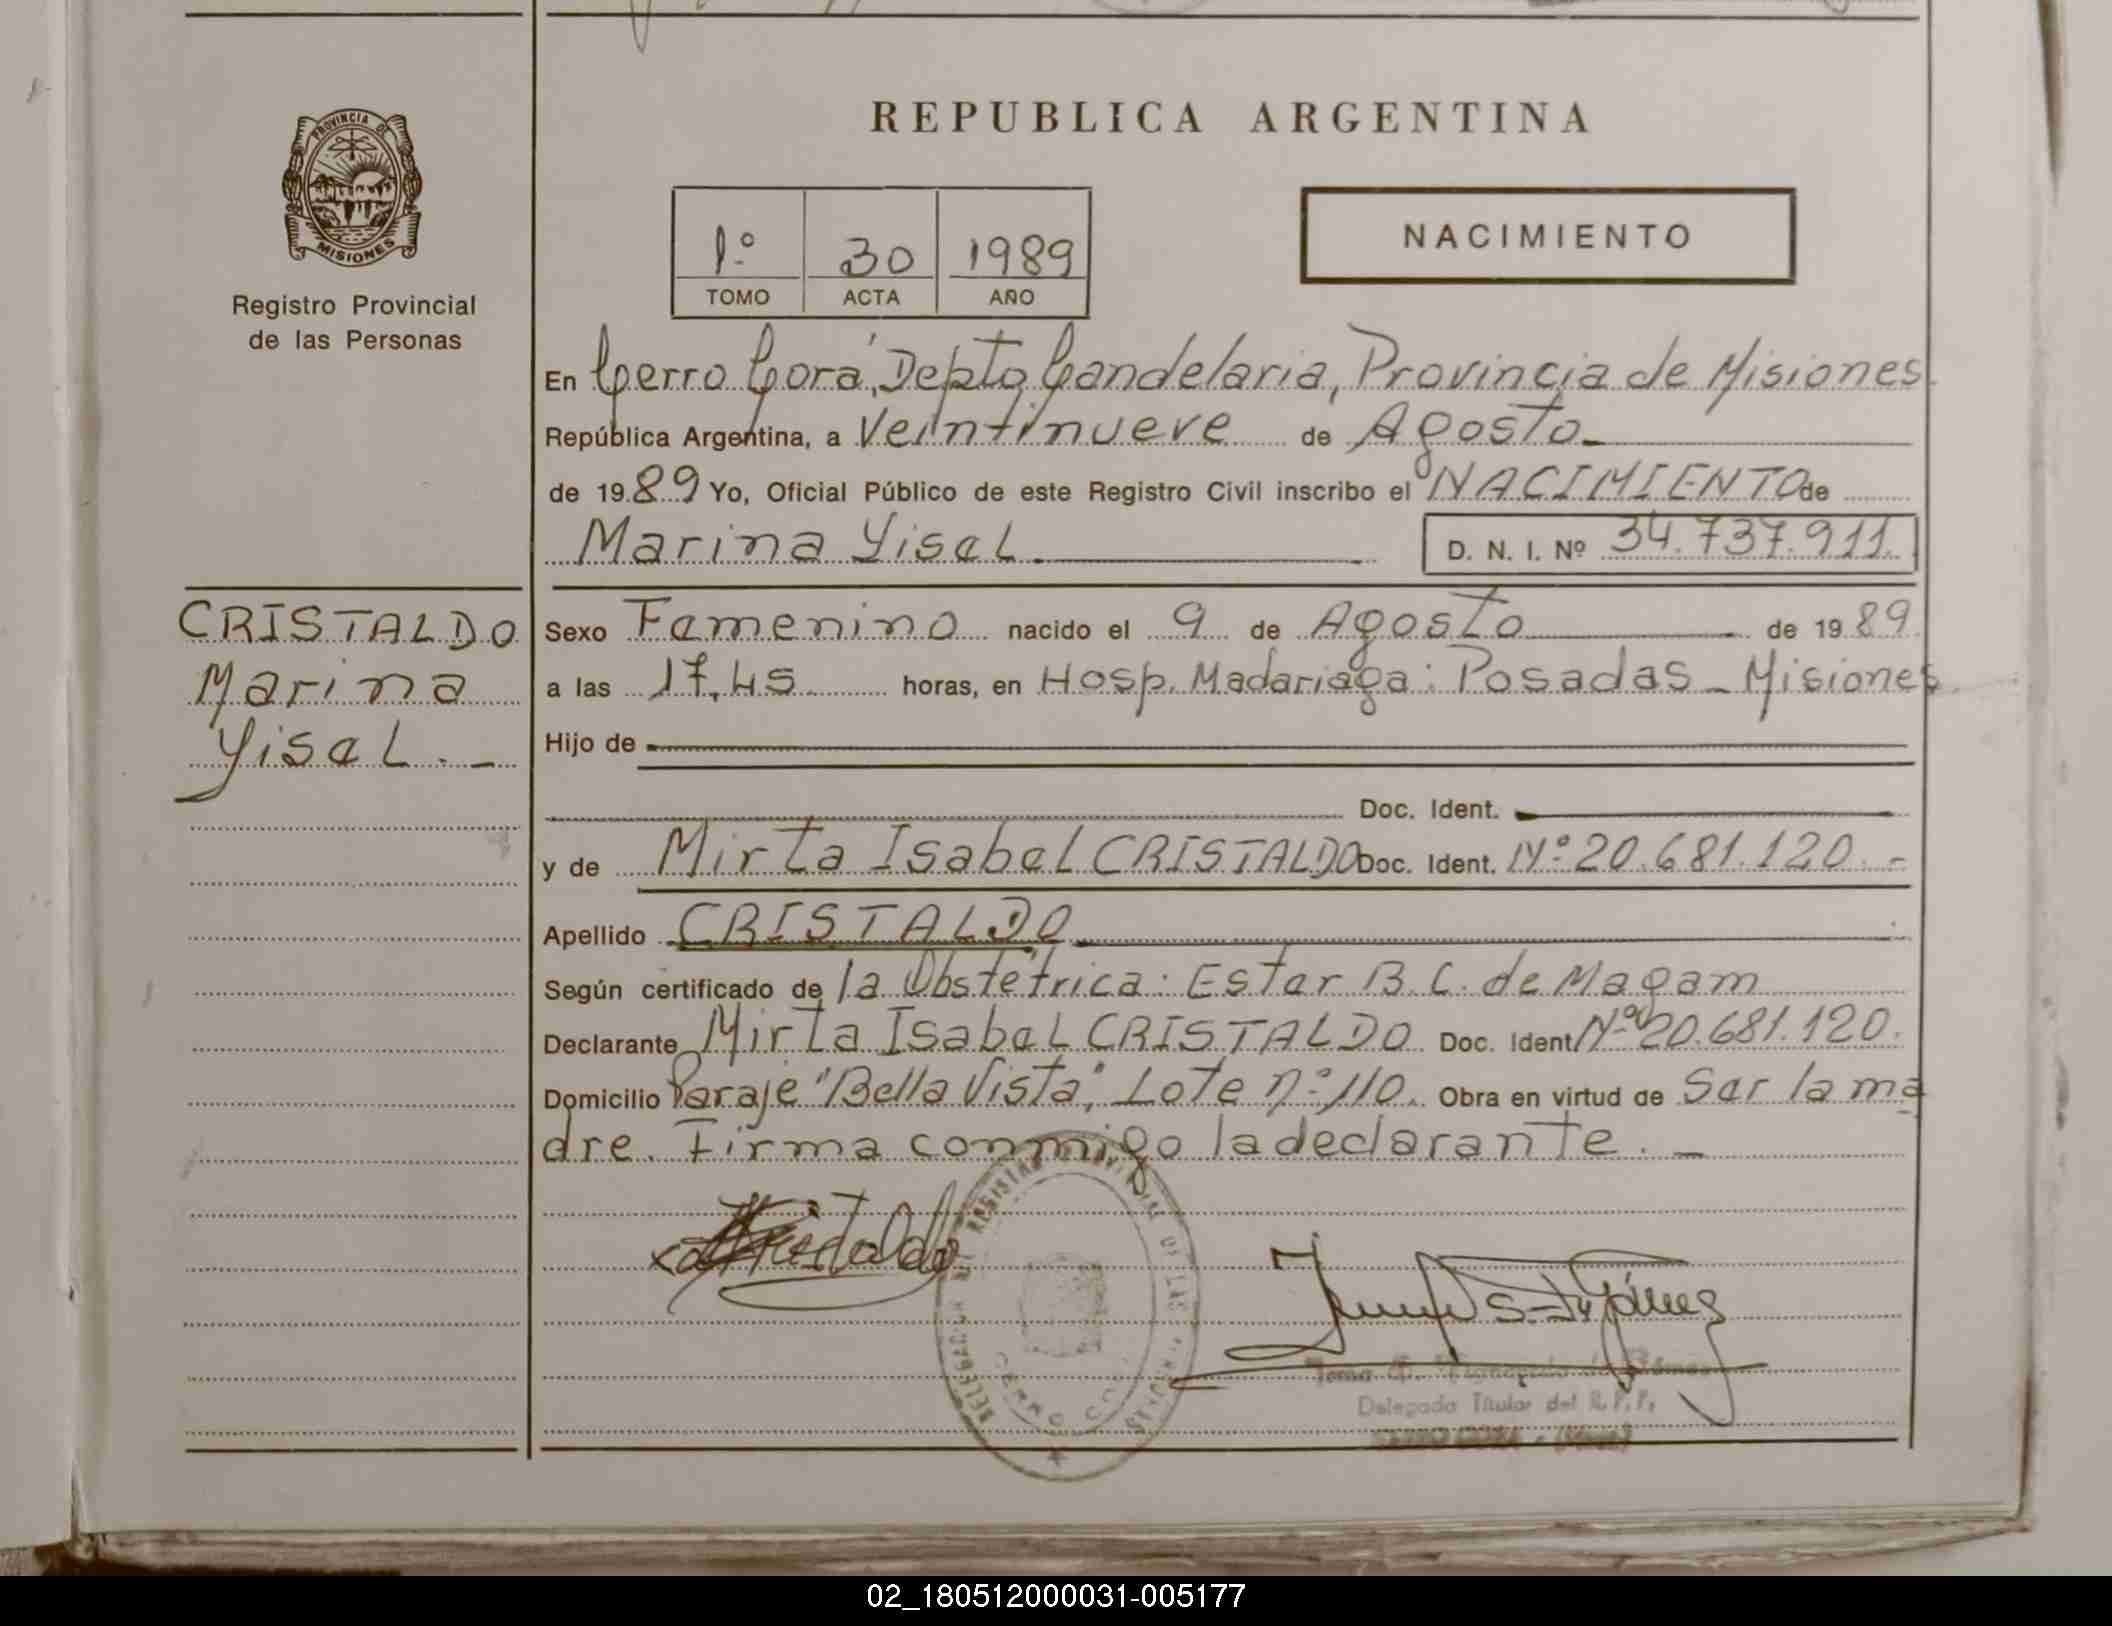 REPUBLICA ARGENTINA
PROVINCIA DE
MISIONES
Registro Provincial
de las Personas
1º 30 1989
TOMO ACTA AÑO
NACIMIENTO
En Cerro Corá, Depto Candelaria, Provincia de Misiones
República Argentina, a Veintinueve de Agosto
de 1989 Yo, Oficial Público de este Registro Civil inscribo el NACIMIENTO de
Marina Yisel D. N. I. Nº 34.737.911
CRISTALDO
Marina
Yisel. -
Sexo Femenino nacido el 9 de Agosto de 1989
a las 17,45 horas, en Hosp. Madariaga: Posadas - Misiones
Hijo de
Doc. Ident.
y de Mirta Isabel CRISTALDO Doc. Ident. Nº 20.681.120. -
Apellido CRISTALDO
Según certificado de la Obstétrica: Ester B. C. de Magam
Declarante Mirta Isabel CRISTALDO Doc. Ident Nº 20.681.120.
Domicilio Paraje "Bella Vista", Lote nº 110. Obra en virtud de Ser la ma
dre. Firma conmigo la declarante. -
Cristaldo
CERRO CO
Delegada Titular del R. P. P.
02_180512000031-005177